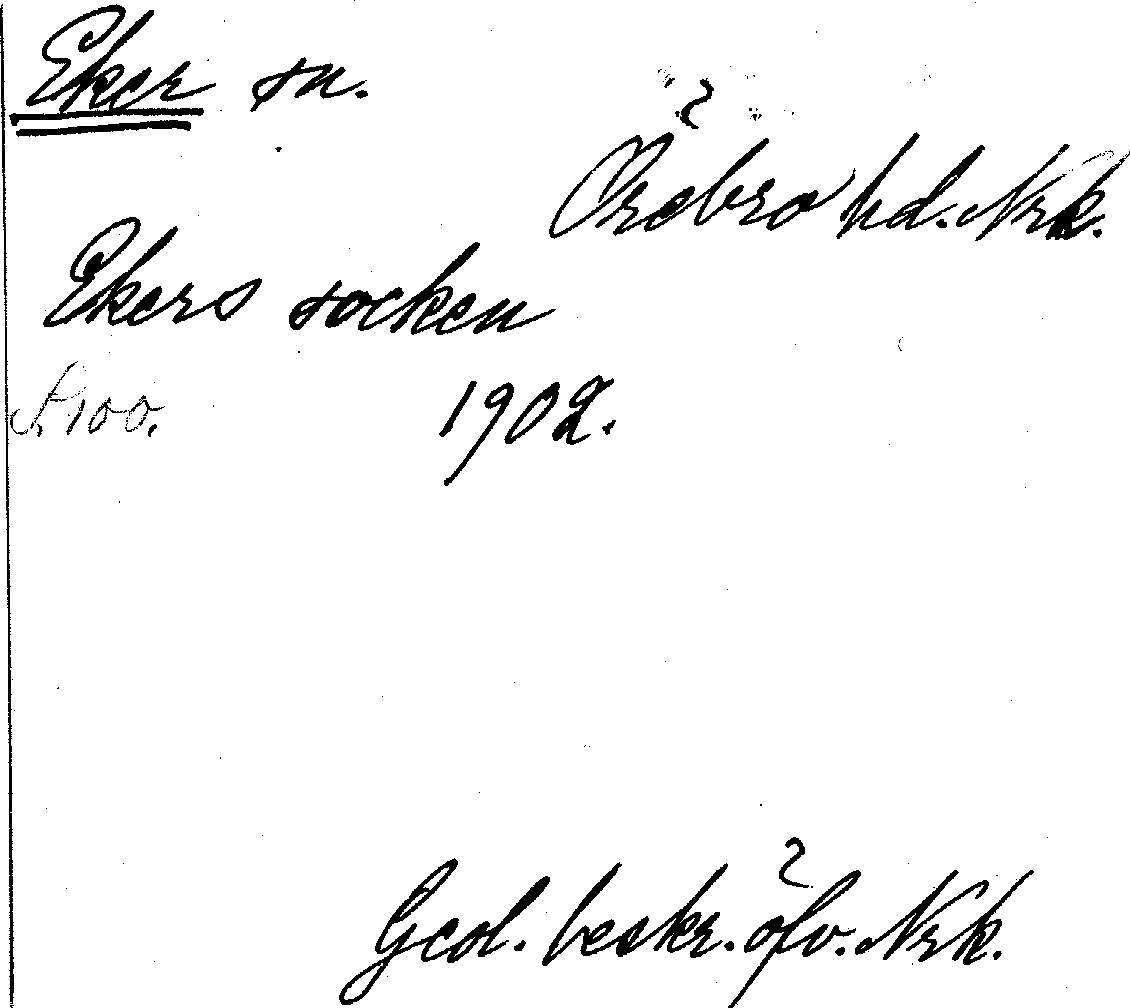 Eker sn.
Örebro hd. Nrk.
Ekers socken
S. 100.
1902.
Geol. beskr. öfv. Nrk.